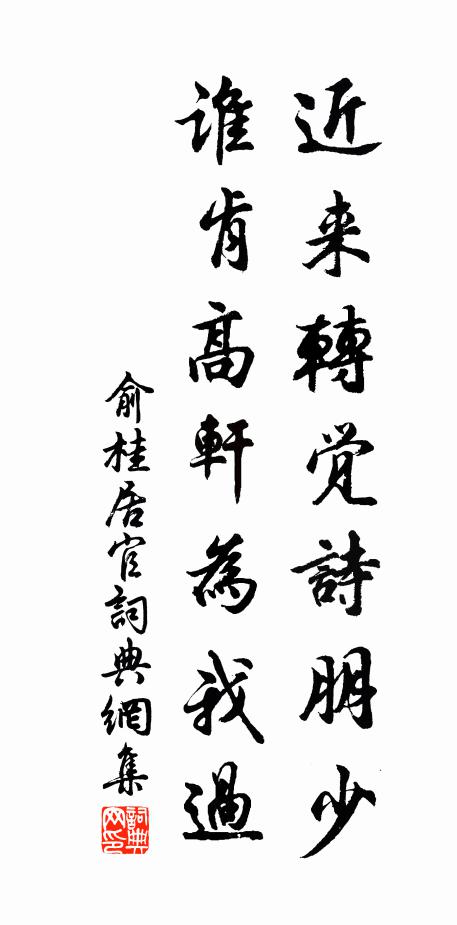 近来轉覚詩朋少
誰肯高軒為我過
俞桂居官詞典網集
詞典网印